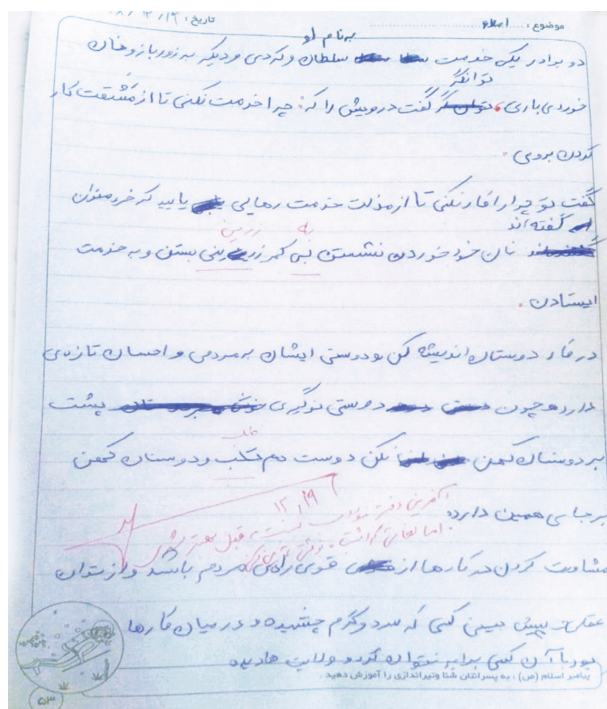 موضوع : املاء تاریخ : ۱۹ / ۱۲ / ۸
به نام او
دو برادر یکی خدمت سلطان و کردی و دیگر به زور بازو خان
توانگر
خوردی باری، گفت درویش را که : چرا خدمت نکنی تا از مشقت کار
کردن بروی .
گفت تو چرا را فار نکنی تا از مذلت خدمت رهایی یابید که خردمندان
گفته اند
به زرین
نان خود خوردن نشستن بی کمر زرینی بستن و به خدمت
ایستادن .
در فار دوستان اندیشه کن و دوستی ایشان به مردمی و احسان تازه ی
دارد و چون دوستی نوگیری پشت
بر دوستان کهن نکن دوست هم تلب و دوستان کهن
طلب
بر جاسی همین دارد.
۱۲/۱۹
مشاورت کردن در کارها از قوی رامی مردم باشد و از ستوان
عقلی و پیش بینی کسی که سرد و گرم چشیده و در میان کارها
بود با آن کسی برابر نتوان کرد و ولایت ها دیده
پیامبر اسلام (ص) : به پسرانتان شنا و تیراندازی را آموزش دهید .
۵۳